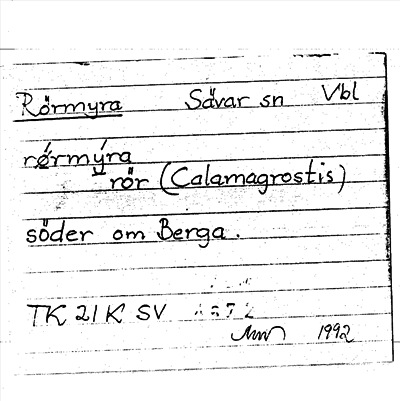 Rörmyra Sävar sn Vbl
rǿrmýra
rör (Calamagrostis)
söder om Berga.
TK 21 K SV
1992